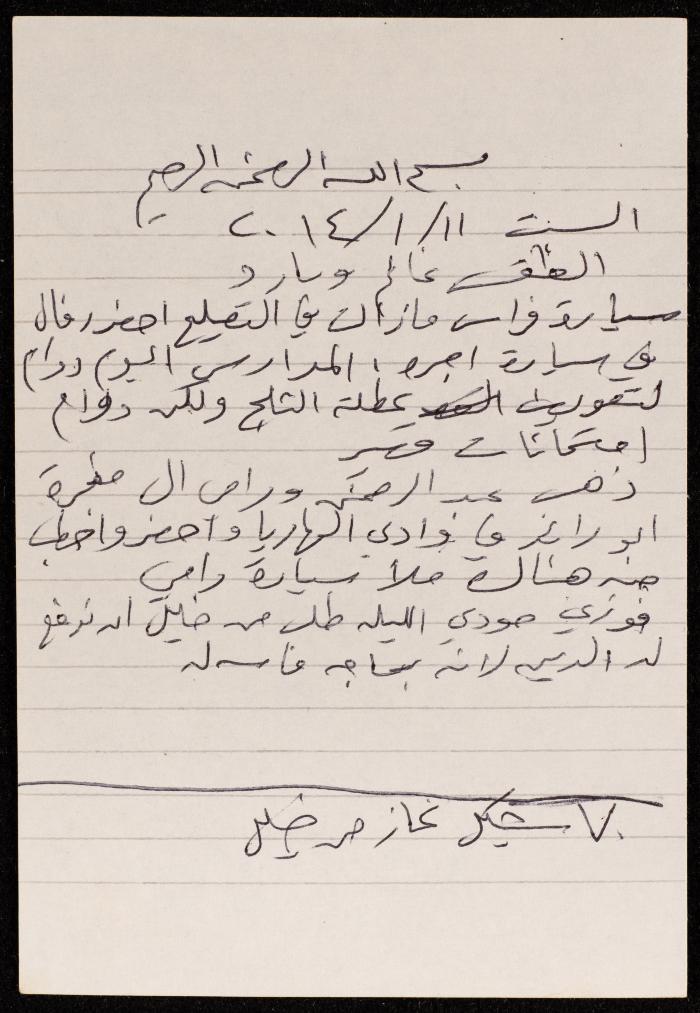 بسم الله الرحمن الرحيم
السبت ١١/١/٢٠١٤
الطقس غائم وبارد
سيارة فراس مازالت في التصليح احضر رفاق
في سيارة اجره، المدارس اليوم دوام
لتعويض عطلة الثلج ولكن دوام
امتحانات فقط
ذهب عبد الرحمن ورامي الى
ابو رائد في وادي الهاريا واحضروا حطب
من هناك ملأ سيارة رامي
فوزي حودي الليله طلب من خليل ان ندفع
له الدين لانه بحاجه ماسه له
٧٠ شيكل غاز من خليل